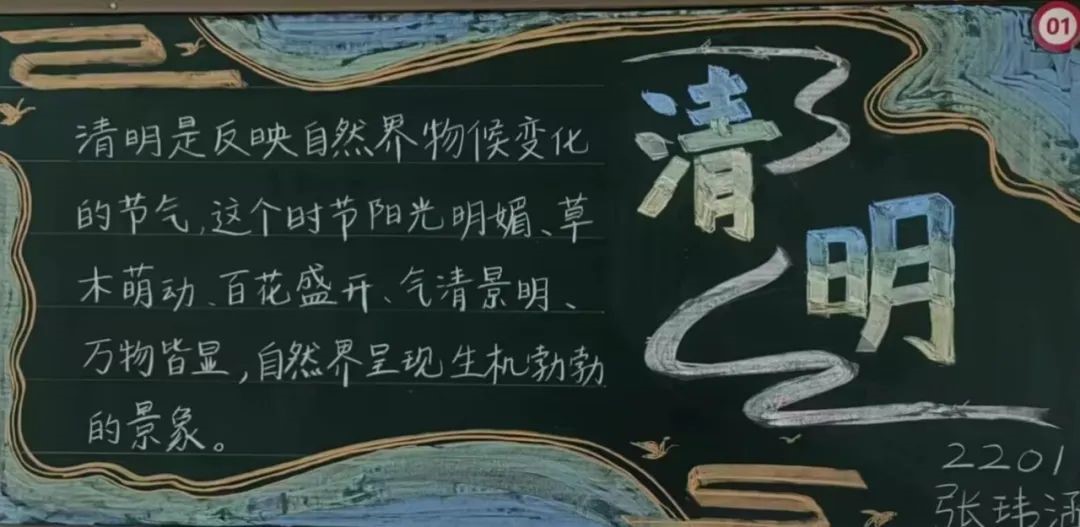 01
清明
清明是反映自然界物候变化
的节气,这个时节阳光明媚、草
木萌动、百花盛开、气清景明、
万物皆显,自然界呈现生机勃勃
的景象。
2201
张玮涵